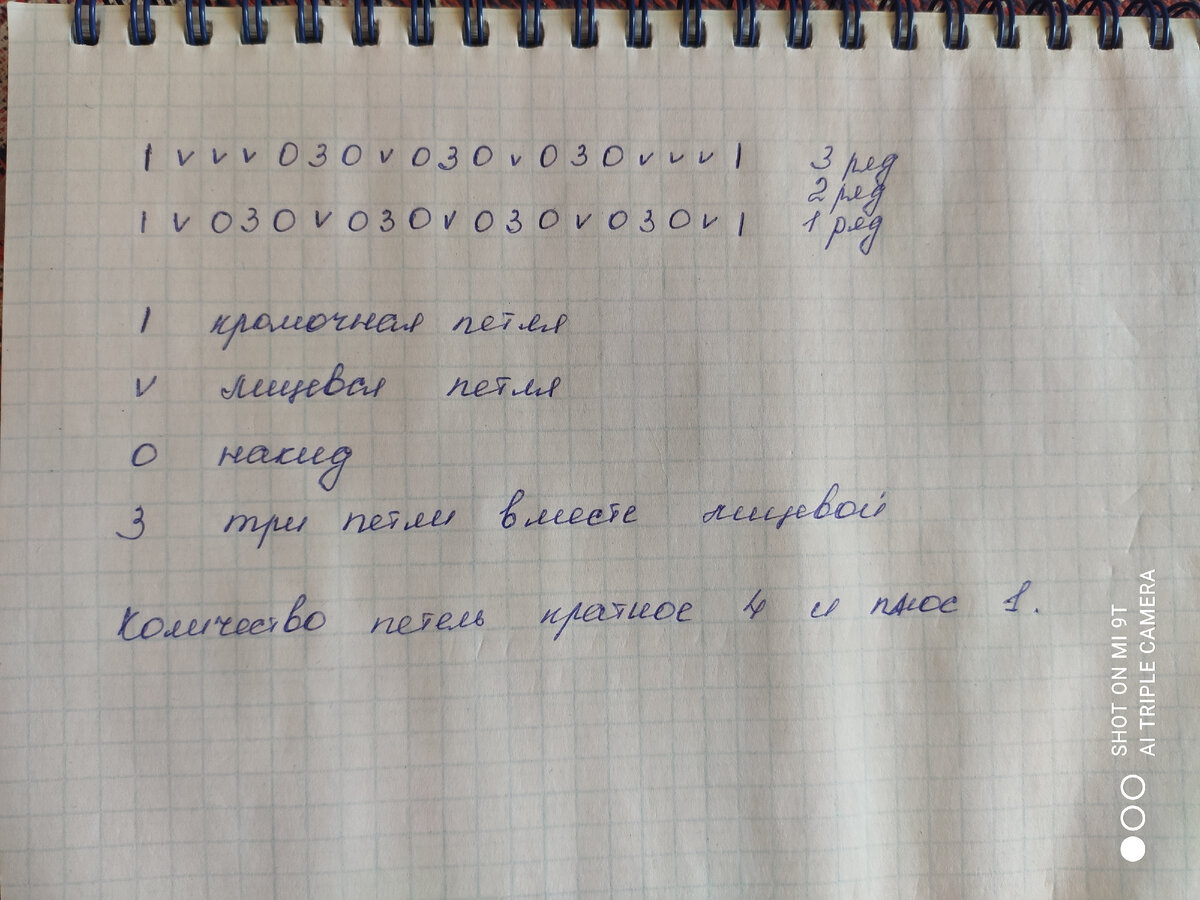 1 v v v 0 3 0 v 0 3 0 v 0 3 0 v v v 1 3 ряд
2 ряд
1 v 0 3 0 v 0 3 0 v 0 3 0 v 0 3 0 v 1 1 ряд
1 кромочная петля
v лицевая петля
0 накид
3 три петли вместе лицевой
Количество петель кратное 4 и плюс 1.
SHOT ON MI 9T
AI TRIPLE CAMERA